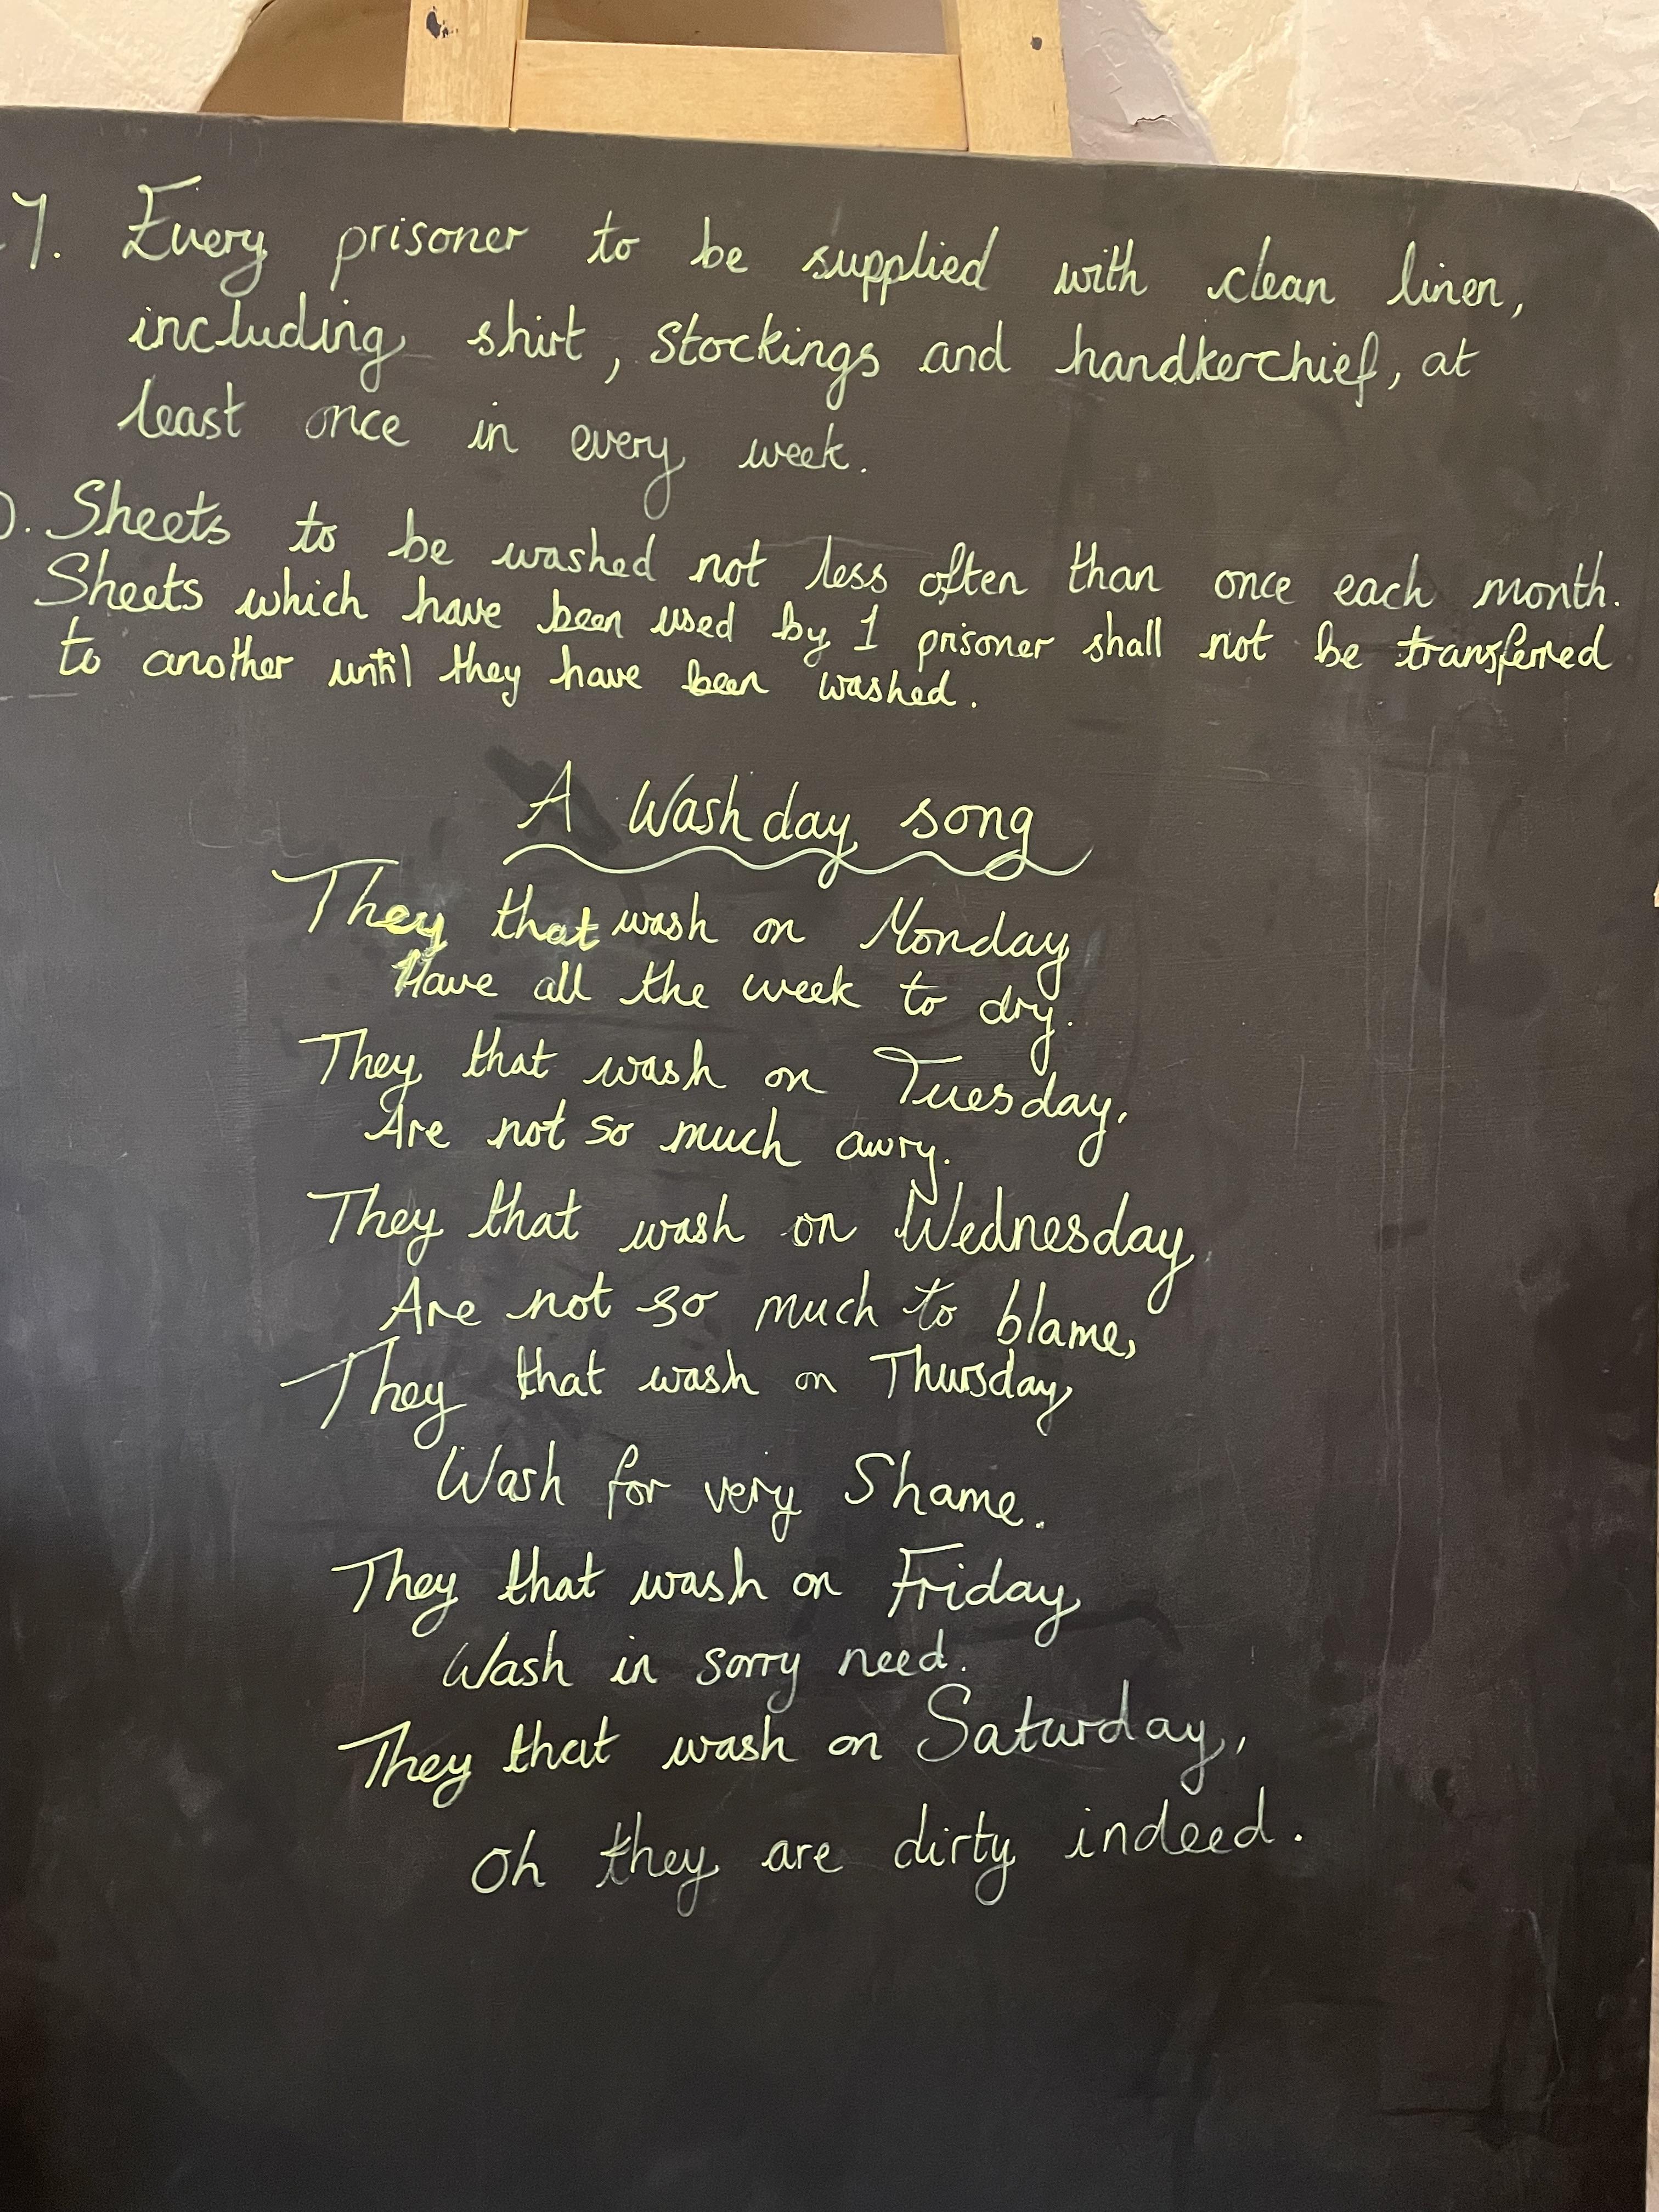 7. Every prisoner to be supplied with clean linen,
including shirt, stockings and handkerchief, at
least once in every week.
. Sheets to be washed not less often than once each month.
Sheets which have been used by 1 prisoner shall not be transferred
to another until they have been washed.
A Washday song
They that wash on Monday
Have all the week to dry.
They that wash on Tuesday,
Are not so much awry.
They that wash on Wednesday,
Are not so much to blame,
They that wash on Thursday,
Wash for very Shame.
They that wash on Friday,
Wash in sorry need.
They that wash on Saturday,
Oh they are dirty indeed.